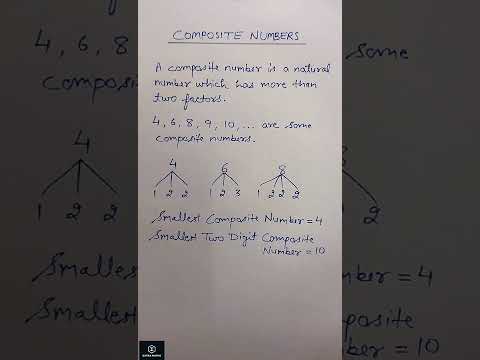 COMPOSITE NUMBERS
A composite number is a natural
number which has more than
two factors.
4, 6, 8, 9, 10, ... are some
composite numbers.
4 6 8
1 2 2 1 2 3 1 2 2 2
Smallest Composite Number = 4
Smallest Two Digit Composite
Number = 10
4, 6, 8 some
composi
4
1 2 2 2
Smallest mber = 4
Smallest osite
mber = 10